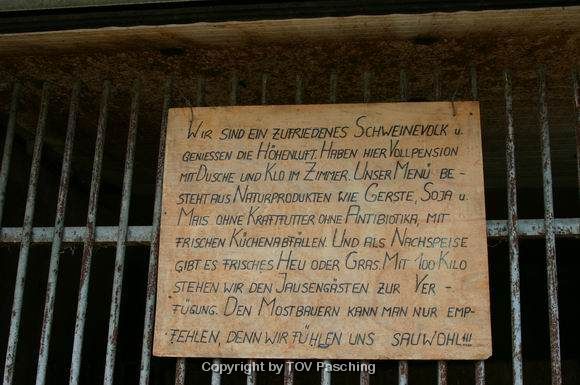 WIR SIND EIN ZUFRIEDENES SCHWEINEVOLK U.
GENIESSEN DIE HÖHENLUFT. HABEN HIER VOLLPENSION
MIT DUSCHE UND KLO IM ZIMMER. UNSER MENÜ BE-
STEHT AUS NATURPRODUKTEN WIE GERSTE, SOJA U.
MAIS OHNE KRAFTFUTTER OHNE ANTIBIOTIKA, MIT
FRISCHEN KÜCHENABFÄLLEN. UND ALS NACHSPEISE
GIBT ES FRISCHES HEU ODER GRAS. MIT 100 KILO
STEHEN WIR DEN JAUSENGÄSTEN ZUR VER-
FÜGUNG. DEN MOSTBAUERN KANN MAN NUR EMP-
FEHLEN, DENN WIR FÜHLEN UNS SAUWOHL!!!
Copyright by TOV Pasching